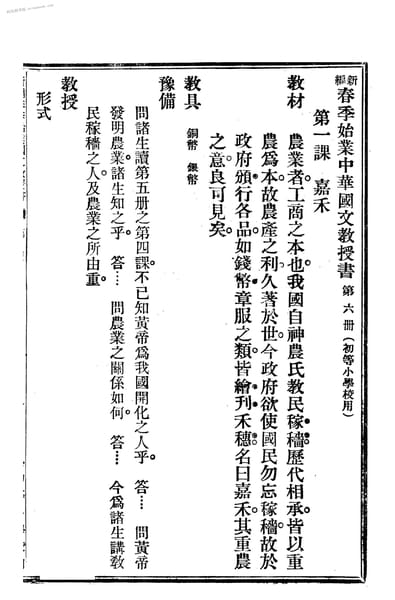 新編春季始業中華國文教授書 第六冊（初等小學校用）
第一課 嘉禾
教材 農業者工商之本也。我國自神農氏教民稼穡。歷代相承。皆以重
農爲本。故農產之利久著於世。今政府欲使國民勿忘稼穡。故於
政府頒行各品。如錢幣章服之類。皆繪刊禾穗。名曰嘉禾。其重農
之意。良可見矣。
教具 銅幣 銀幣
豫備
問諸生讀第五册之第四課。不已知黃帝爲我國開化之人乎。 答⋯ 問黃帝
發明農業。諸生知之乎。 答⋯ 問農業之關係如何。 答⋯ 今爲諸生講教
民稼穡之人。及農業之所由重。
教授
形式